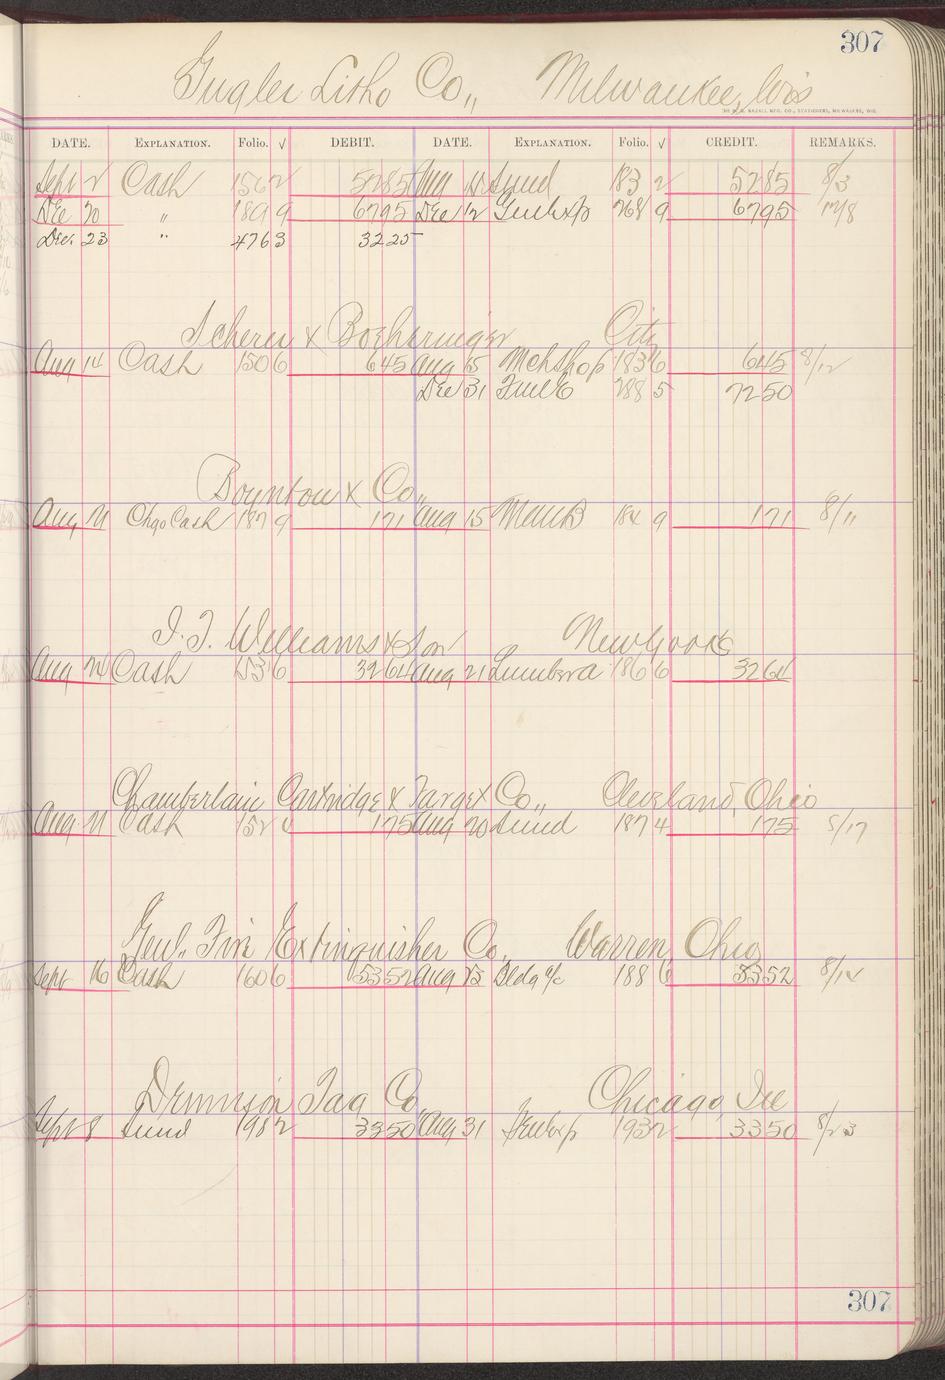 307
Gugler Litho Co., Milwaukee, Wis
DATE. EXPLANATION. Folio. √ DEBIT. DATE. EXPLANATION. Folio. √ CREDIT. REMARKS.
Sept 2 Cash 156 2 5285 Aug Sund 183 2 5285 8/3
Dec 20 " 189 9 6795 Dec 12 GenlExp 268 9 6795
Dec. 23 " 476 3 3225
Scherer & Boehringer City
Aug 14 Cash 150 6 645 Aug 15 MchShop 183 6 645 8/12
Dec 31 Fuel 288 5 7250
Boynton & Co.,
Aug 21 Chgo Cash 187 9 171 Aug 15 184 9 171 8/11
I. T. Williams & Son New York
Aug 24 Cash 153 6 3264 Aug 21 Lumber a 186 6 3264
Chamberlain Cartridge & Target Co., Cleveland, Ohio
Aug 21 Cash 152 4 175 Aug 20 Sund 187 4 175 8/17
Genl. Fire Extinguisher Co., Warren, Ohio
Sept 16 Cash 160 6 5352 Aug Bldg a/c 188 6 5352 8/14
Dennison Tag Co., Chicago, Ill
Sept 8 Sund 198 2 3350 Aug 31 GenlExp 193 2 3350 8/23
307